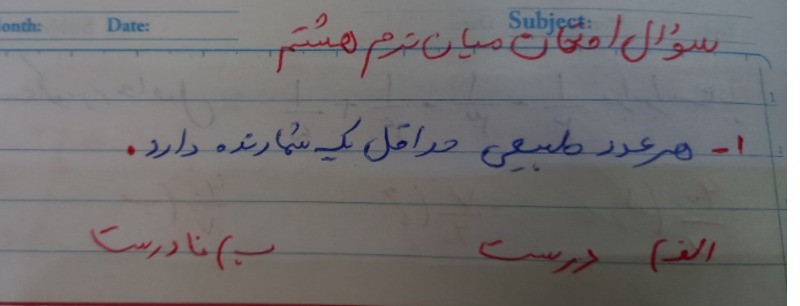 Month: Date: Subject:
سؤال امتحان میان ترم هشتم
۱- هر عدد طبیعی حداقل یک شمارنده دارد.
الف) درست ب) نادرست